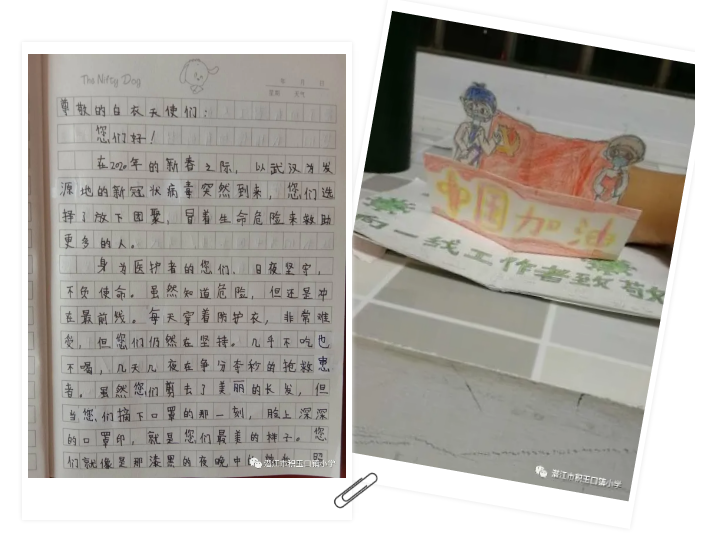 The Nifty Dog
年 月 日
星期 天气
尊敬的白衣天使们:
您们好!
在2020年的新春之际, 以武汉为发
源地的新冠状病毒突然到来, 您们选
择了放下团聚, 冒着生命危险来救助
更多的人。
身为医护者的您们, 日夜坚守,
不负使命。虽然知道危险, 但还是冲
在最前线。每天穿着防护衣, 非常难
受, 但您们仍然在坚持。几乎不吃也
不喝, 几天几夜在争分夺秒的抢救患
者。虽然您们剪去了美丽的长发, 但
当您们摘下口罩的那一刻, 脸上深深
的口罩印, 就是您们最美的样子。您
们就像是那漆黑的夜晚中
潜江市积玉口镇小学
中国加油
向一线工作者致敬
潜江市积玉口镇小学